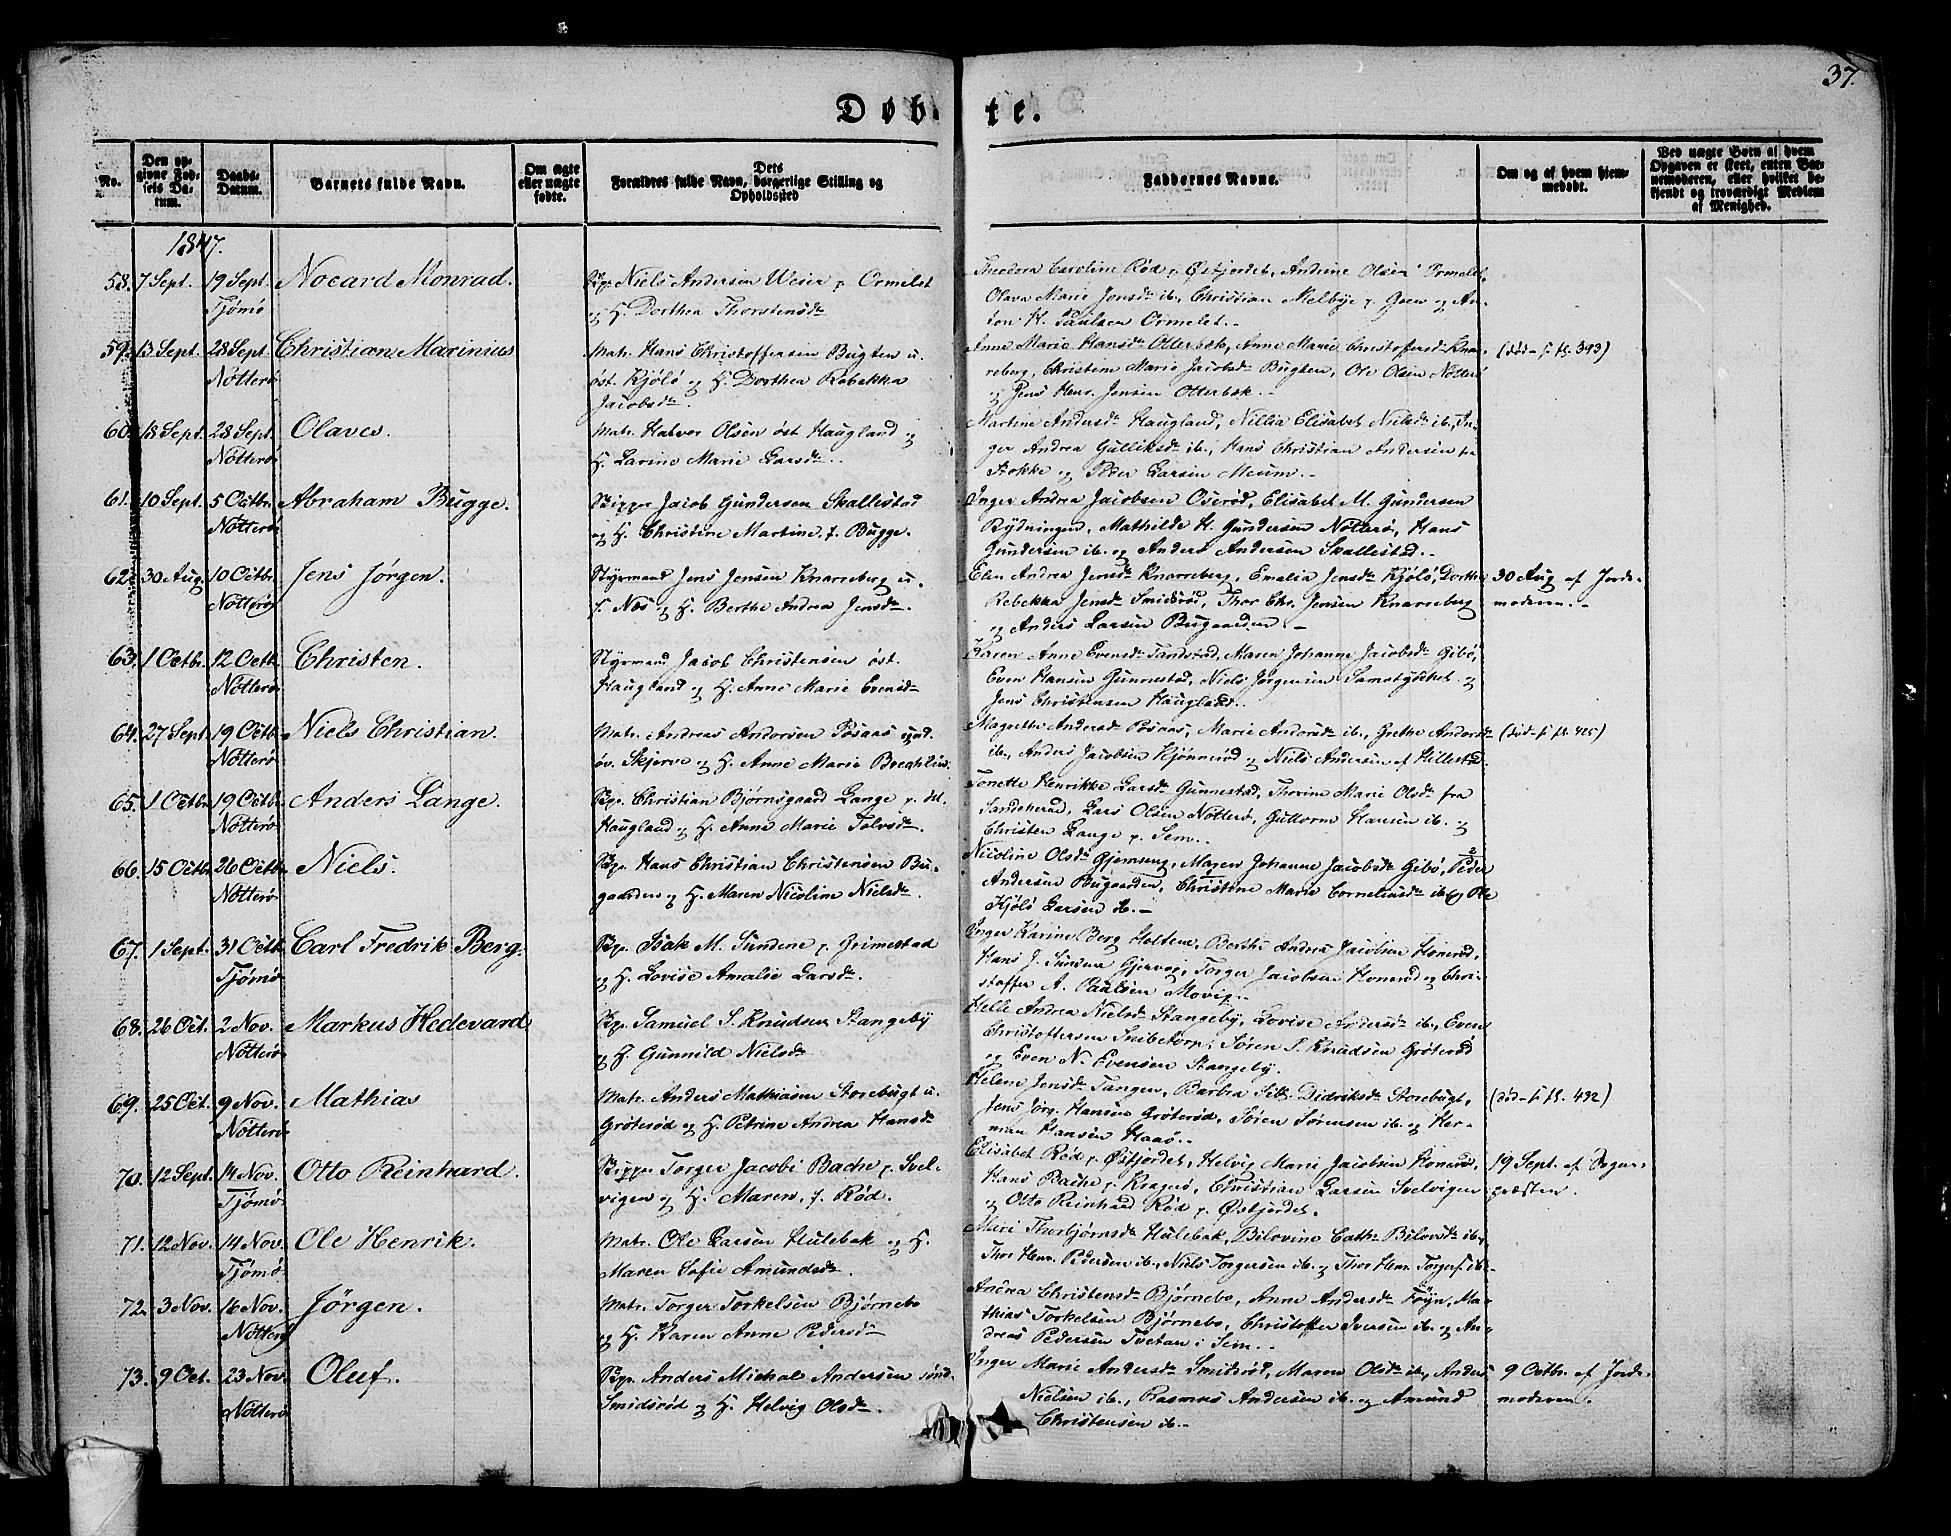 37.
Døb-te.
No.
Den op-
givne Fød-
sels Da-
tum.
Daabs-
Datum.
Barnets fulde Navn.
Om ægte
eller uægte
fødte.
Dets
Forældres fulde Navn, borgerlige Stilling og
Opholdssted
Faddernes Navne.
Om og af hvem hjem-
medøbt.
Ved uægte Born af hvem
Opgaven er skeet, enten Bar-
nemoderen, eller hvilket be-
kjendt og troværdigt Medlem
af Menighed.
1847.
58. 7 Sept. 19 Sept. Nocard Monrad.
Tjömö
Niels Andersen Weier p. Ormelet
og H. Dorthea Thorstensdr
Theodora Caroline Röd p. Östjordet, Andrine Olsen Ormelet,
Olava Marie Jonsdr ib., Christian Melbye p. Goen og An-
ton H. Paulsen Ormelet.
59. 13 Sept. 28 Sept. Christian Marinius
Nötterö
Matr. Hans Christoffersen Bugten u.
öst. Kjölö og H. Dorthea Rebekka
Jacobsdr.
Anne Marie Hansdr Otterbek, Anne Marie Christoffersdr Knar-
reberg, Christine Marie Jacobsdr Bugten, Ole Olsen Nötterö
og Jens Henr. Jensen Otterbek.
(död - fl. 393)
60. 13 Sept. 28 Sept. Olaves.
Nötterö
Matr. Halvor Olsen öst Haugland og
H. Larine Marie Larsdr.
Martine Andersdr Haugland, Nillia Elisabet Nielsdr ib., In-
ger Andrea Gulliksdr ib., Hans Christian Andersen fra
Stokke og Peer Larsen Meum.
61. 10 Sept. 5 Octbr. Abraham Bugge.
Nötterö
Skipper Jacob Gundersen Skallestad
og H. Christine Martine, f. Bugge.
Inger Andrea Jacobsen Oseröd, Elisabet M. Gundersen
Rydningen, Mathilde H. Gundersen Nötterö, Hans
Gundersen ib. og Anders Andersen Skallestad.
62. 30 Aug. 10 Octbr. Jens Jörgen.
Nötterö
Styrmand Jens Jensen Knarreberg u.
f. Næs og H. Berthe Andrea Jensdr.
Elen Andrea Jensdr Knarreberg, Emalia Jensdr Kjölö, Dorthe
Rebekka Jensdr Smidsröd, Thor Chr. Jensen Knarreberg
og Anders Larsen Bugaarden.
30 Aug af Jorde-
moderen.
63. 1 Octbr. 12 Octb. Christen.
Nötterö
Styrmand Jacob Christensen öst.
Haugland og H. Anne Marie Evensdr
Karen Anne Evensdr Tandstad, Maren Johanne Jacobsdr Gibö,
Even Hansen Gunnestad, Niels Jörgensen og
Jens Christensen Haugland.
64. 27 Sept. 19 Octb. Niels Christian.
Nötterö
Matr. Andreas Andersen
öv. Skjerve og H. Anne Marie
Magrethe Andersd Marie Andersdr ib., Grethe Andersdr
ib., Anders Jacobsen Kjönneröd og Niels Andersen af Hillestad.
(död - fl. 425)
65. 1 Octbr. 19 Octbr. Anders Lange.
Nötterö
Christian Björnsgaard Lange p. öst.
Haugland og H. Anne Marie Tolvsdr.
Tonette Henrikke Larsdr Gunnestad, Thorine Marie Olsdr fra
Sandeherad, Lars Olsen Nötterö, Guttorm Hansen ib. og
Christen Lange p. Sem.
66. 15 Octbr. 26 Octbr. Niels.
Nötterö
Hans Christian Christensen Bu-
gaarden og H. Maren Nicoline Nielsdr.
Nicoline Olsdr Gjemseng, Maren Johanne Jacobsdr Gibö, Peder
Andersen Bugaarden, Christine Marie Corneliusdr ib. og Ole
Kjölö Larsen ib.
67. 1 Sept. 31 Octb. Carl Fredrik Berg.
Tjömö
Isak M. Sundene p. Grimestad
og H. Lovise Amalie Larsdr.
Inger Karine Berg Holtene, Berthe Andrea Jacobsen Honeröd,
Hans J. Sundene Gjervog, Torger Jacobsen Honeröd og Chri-
stoffer A. Paulsen Movig.
68. 26 Oct. 2 Nov. Markus Hedevard
Nötterö
Samuel S. Knudsen Stangeby
og H. Gunnild Nielsdr
Helle Andrea Nielsdr Stangeby, Lovise Andersdr ib., Even
Christoffersen Snibetorp, Sören S. Knudsen Gröteröd
og Even N. Evensen Stangeby.
69. 25 Oct. 9 Nov. Mathias
Nötterö
Matr. Anders Mathiasen Storebugt u.
Gröteröd og H. Petrine Andrea Hansdr
Helene Jensdr Tangen, Barbra Didriksdr Storebugt,
Jens Jörg. Hansen Gröteröd, Sören Sörensen ib. og Her-
man Hansen Haaö.
(död - fl. 492)
70. 12 Sept. 14 Nov. Otto Reinhard.
Tjömö
Skipper Torger Jacobi Bache p. Svel-
vigen og H. Maren, f. Röd.
Elisabet Röd p. Östjordet, Helvig Marie Jacobsen Honeröd,
Hans Bache p. Kragerö, Christian Larsen Svelvigen
og Otto Reinhard Röd p. Östjordet.
19 Sept. af Sogne-
præsten.
71. 12 Nov. 14 Nov. Ole Henrik.
Tjömö
Matr. Ole Larsen Hulebak og H.
Maren Sofie Amundsdr.
Mari Thorbjörnsdr Hulebak, Bilovine Cath. ib.,
Thor Henr. Pedersen ib., Niels Torgersen ib. og Thor Henr. Torgersen ib.
72. 3 Nov. 16 Nov. Jörgen.
Nötterö
Matr. Torger Torkelsen Björnebo
og H. Karen Anne Pedersdr
Andrea Christensdr Björnebo, Anne Andersdr Föyn, Ma-
thias Torkelsen Björnebo, Christoffer Iversen ib. og An-
dreas Pedersen Tvetan i Sem.
73. 9 Oct. 23 Nov. Oluf.
Nötterö
Anders Michal Andersen sönd.
Smidsröd og H. Helvig Olsdr.
Inger Marie Andersdr Smidsröd, Maren Olsdr ib., Anders
Nielsen ib., Rasmus Andersen ib. og Amund
Christensen ib.
9 Octbr. af Jorde-
moderen.